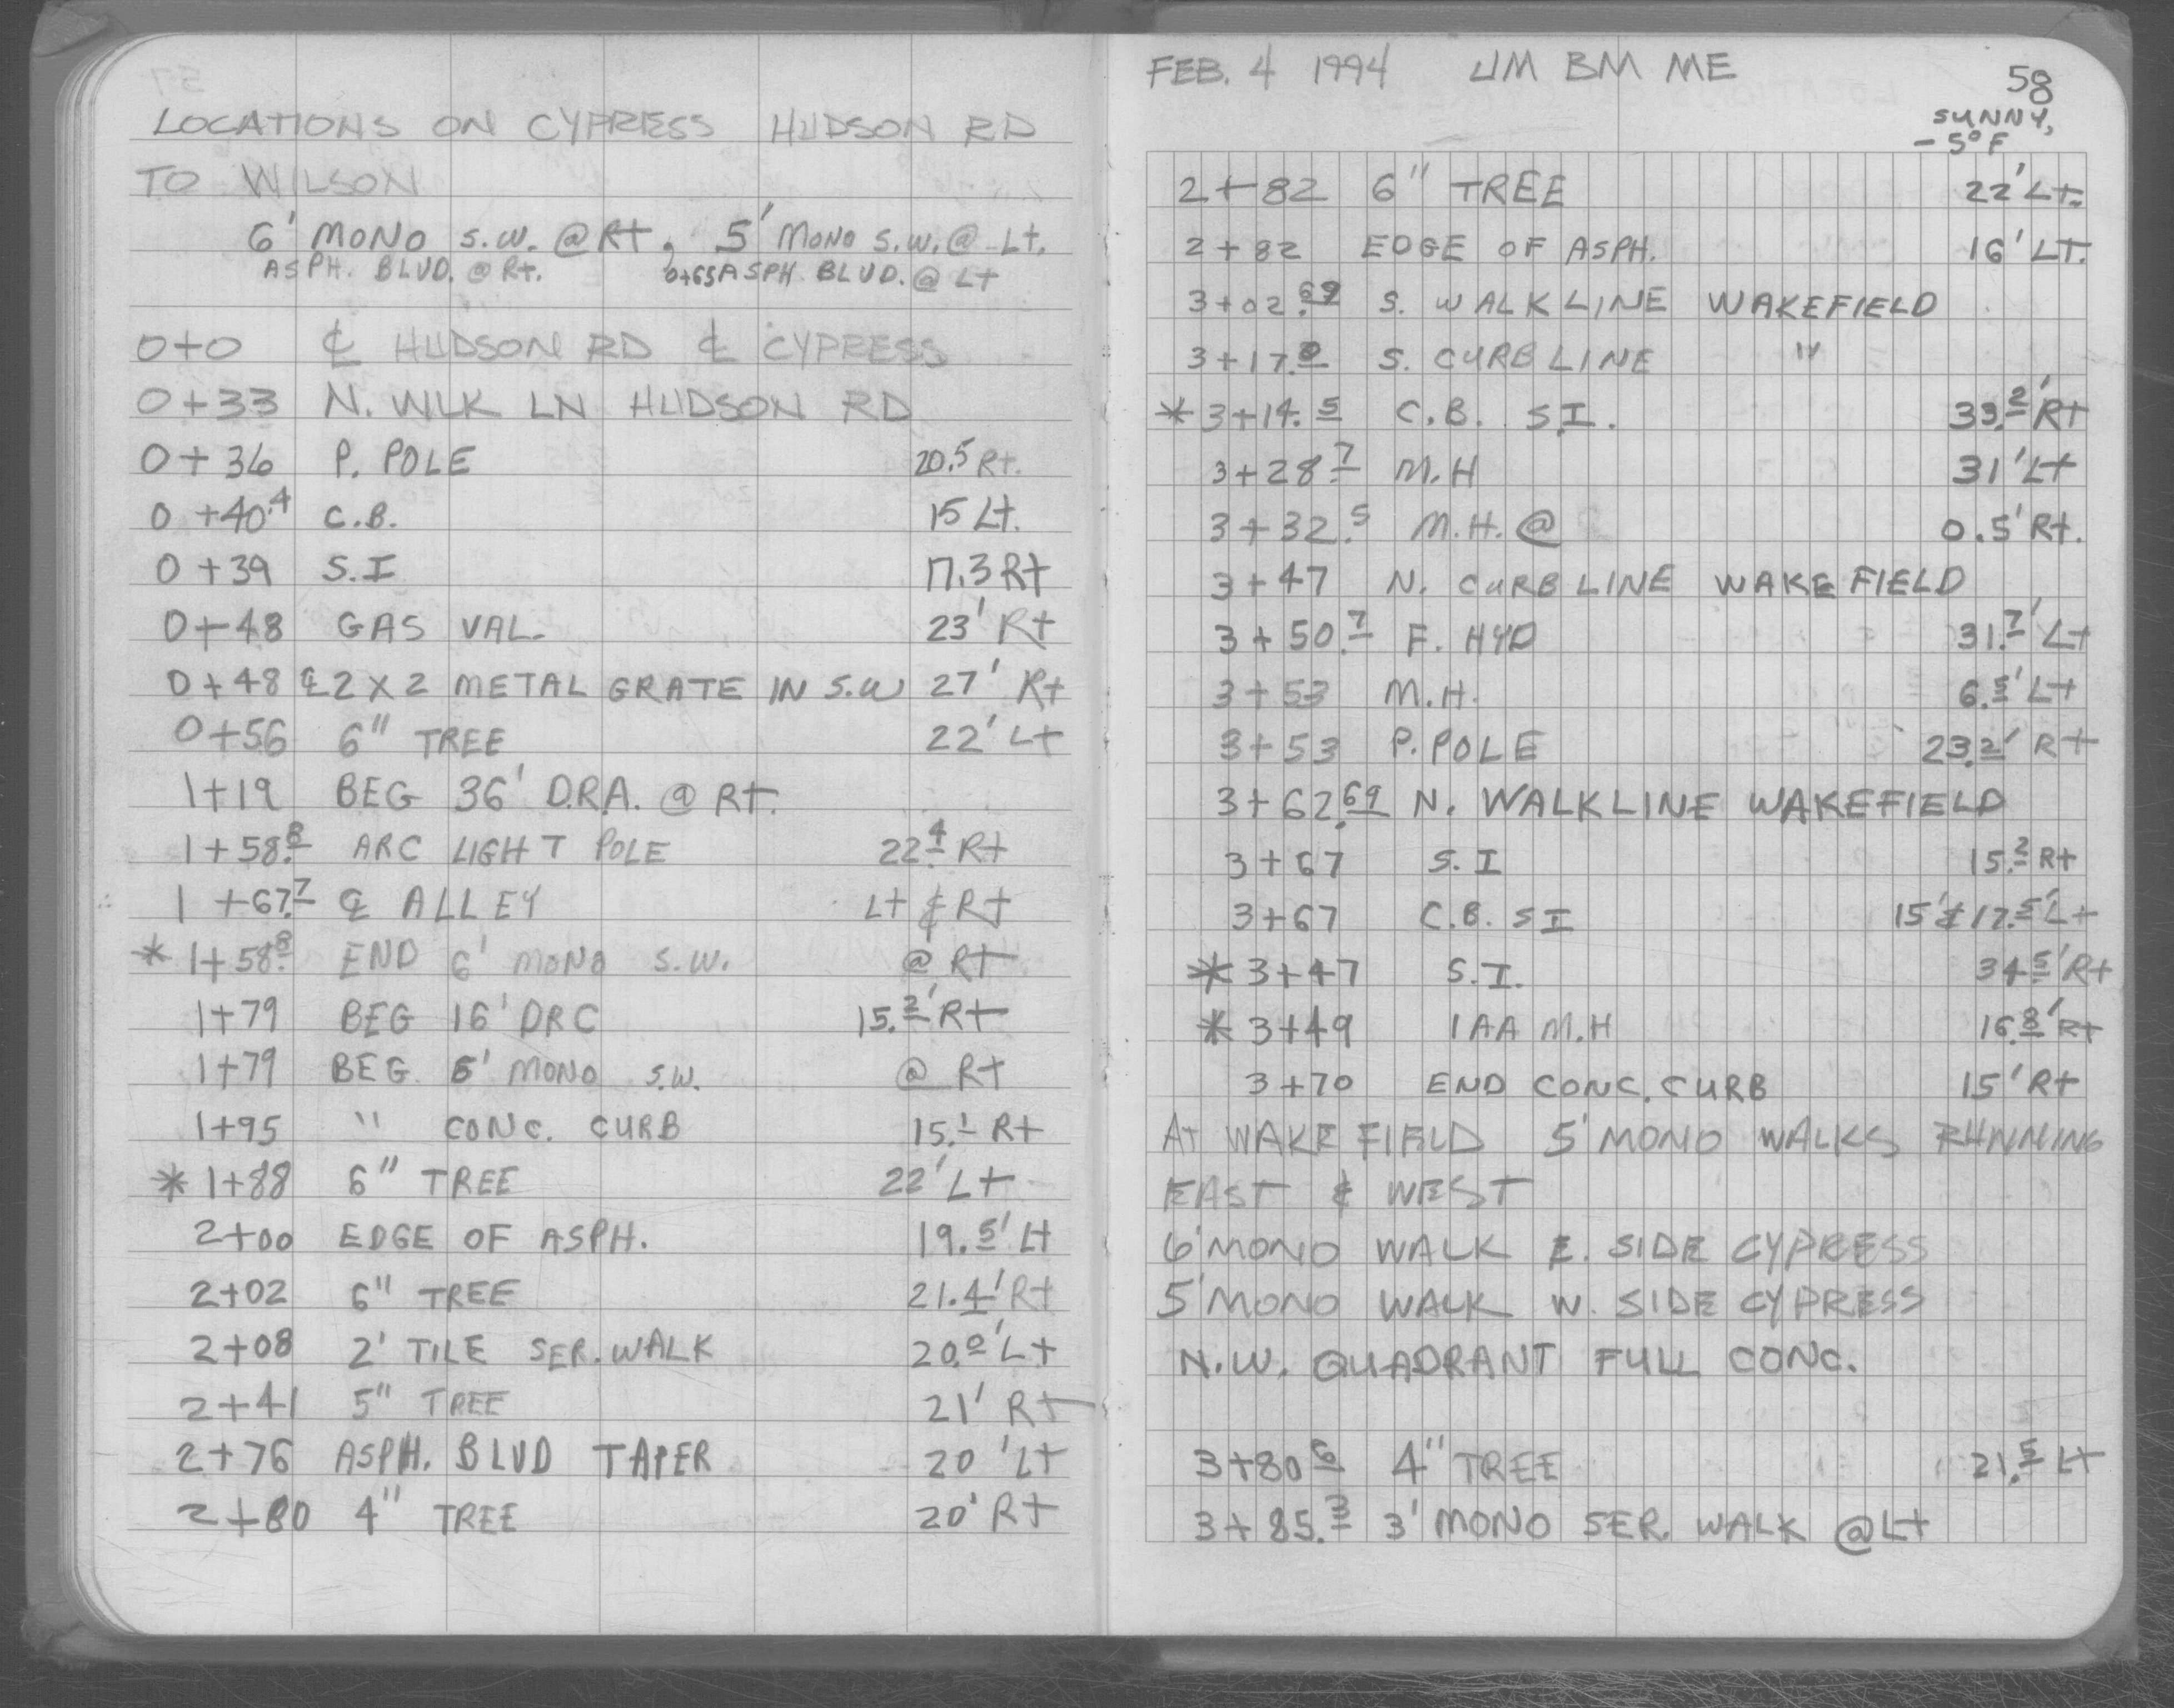 LOCATIONS ON CYPRESS HUDSON RD
TO WILSON
6' MONO S.W. @ Rt, 5' MONO S.W. @ Lt.
ASPH. BLVD. @ Rt. 0+65 ASPH BLVD. @ Lt
0+0 ℄ HUDSON RD ℄ CYPRESS
0+33 N. WLK LN HUDSON RD
0+36 P. POLE 20.5 Rt.
0+40.4 C.B. 15 Lt.
0+39 S.I 17.3 Rt
0+48 GAS VAL. 23' Rt
0+48 ℄ 2 X 2 METAL GRATE IN S.W 27' Rt
0+56 6" TREE 22' Lt
1+19 BEG 36' D.R.A. @ Rt.
1+58.8 ARC LIGHT POLE 22.4 Rt
1+67.7 ℄ ALLEY Lt & Rt
* 1+58.8 END 6' MONO S.W. @ Rt
1+79 BEG 16' DRC 15.2' Rt
1+79 BEG. 6' MONO S.W. @ Rt
1+95 " CONC. CURB 15.1 Rt
* 1+88 6" TREE 22' Lt
2+00 EDGE OF ASPH. 19.5' Lt
2+02 6" TREE 21.4' Rt
2+08 2' TILE SER. WALK 20.0' Lt
2+41 5" TREE 21' Rt
2+76 ASPH. BLVD TAPER 20' Lt
2+80 4" TREE 20' Rt
FEB. 4 1994 JM BM ME
58
SUNNY,
-5°F
2+82 6" TREE 22' Lt.
2+82 EDGE OF ASPH. 16' LT.
3+02.69 S. WALK LINE WAKEFIELD
3+17.0 S. CURB LINE "
* 3+14.5 C.B. S.I. 33.2' Rt
3+28.7 M.H 31' Lt
3+32.5 M.H. @ 0.5' Rt.
3+47 N. CURB LINE WAKEFIELD
3+50.7 F. HYD 31.7' Lt
3+53 M.H. 6.5' Lt
3+53 P. POLE 23.2' Rt
3+62.69 N. WALKLINE WAKEFIELD
3+67 S. I 15.2 Rt
3+67 C.B. SI 15' & 17.5' Lt
* 3+47 S.I. 34.5' Rt
* 3+49 1AA M.H 16.8' Rt
3+70 END CONC. CURB 15' Rt
At WAKEFIELD 5' MONO WALKS RUNNING
EAST & WEST
6' MONO WALK E. SIDE CYPRESS
5' MONO WALK W. SIDE CYPRESS
N.W. QUADRANT FULL CONC.
3+80.6 4" TREE 21.5 Lt
3+85.3 3' MONO SER. WALK @ Lt